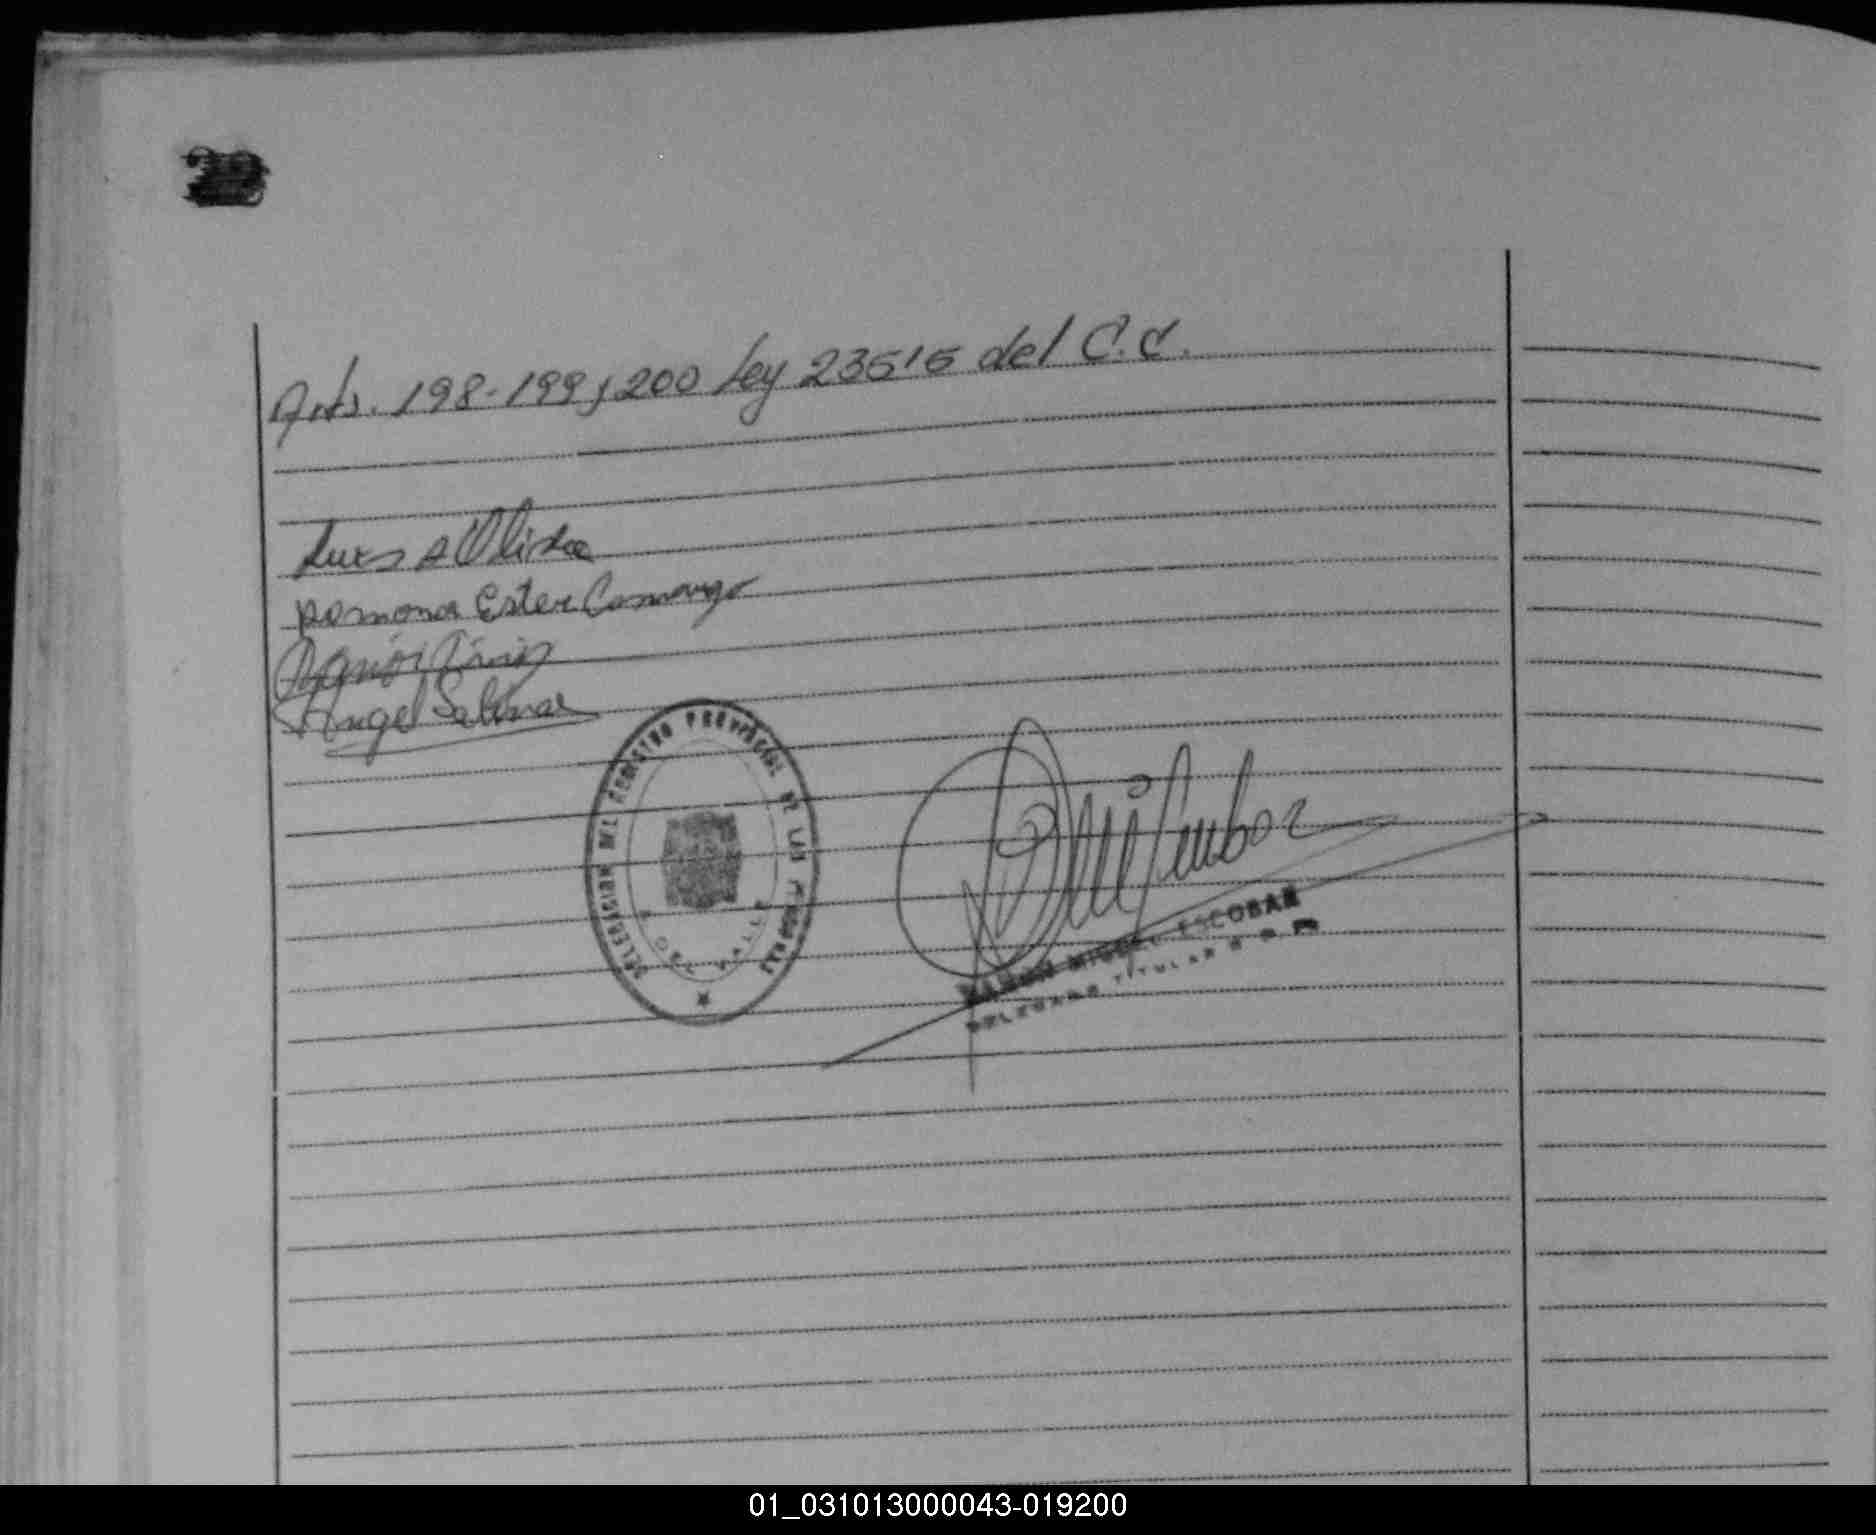 Arts. 198-199 y 200 Ley 23515 del C.C.
Luis A
Ramona Ester Camargo
Angel Salinas
DELEGACION DEL REGISTRO PROVINCIAL DE LAS PERSONAS
VALLE
RAMON MIGUEL ESCOBAR
DELEGADO TITULAR
01_031013000043-019200